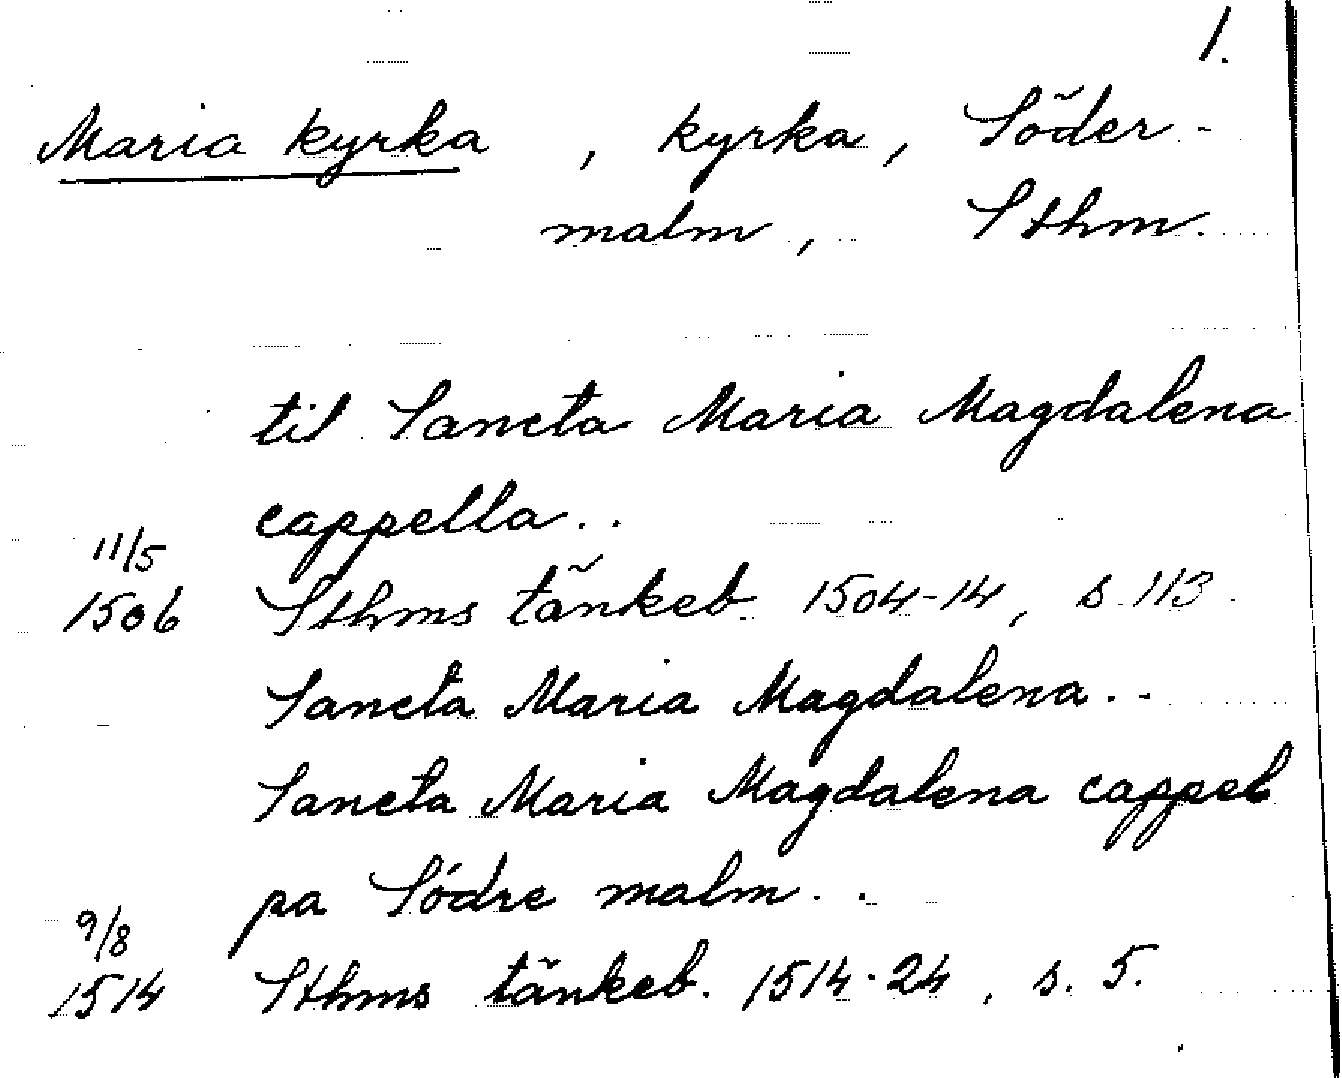 1.
Maria kyrka , kyrka, Söder-
malm, Sthm.
til Sancta Maria Magdalena
cappella..
11/5
1506 Sthms tänkeb. 1504-14, s. 113
Sancta Maria Magdalena..
Sancta Maria Magdalena cappel
pa Södre malm..
9/8
1514 Sthms tänkeb. 1514-24, s. 5.